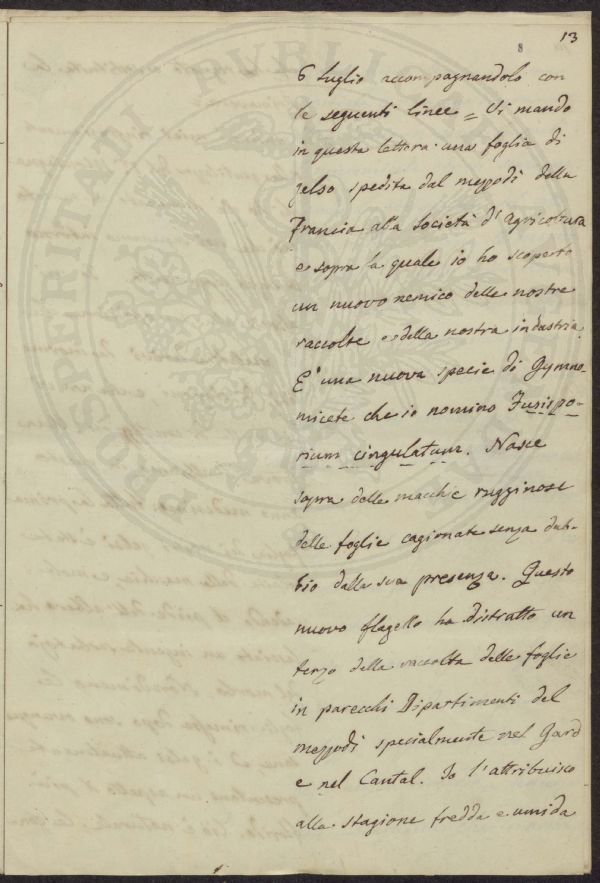 13
8
6 Luglio accompagnandolo con
le seguenti linee = Vi mando
in questa lettera una foglia di
gelso spedita dal mezzodì della
Francia alla Società d'Agricoltura
e sopra la quale io ho scoperto
un nuovo nemico delle nostre
raccolte e della nostra industria.
E' una nuova specie di Gymno-
micete che io nomino Fusispo-
rium cingulatum. Nasce
sopra delle macchie rugginose
delle foglie cagionate senza dub-
bio dalla sua presenza. Questo
nuovo flagello ha distratto un
terzo della raccolta delle foglie
in parecchi Dipartimenti del
mezzodì specialmente nel Gard
e nel Cantal. Io l'attribuisco
alla stagione fredda e umida
PROSPERITATI PVBLICAE